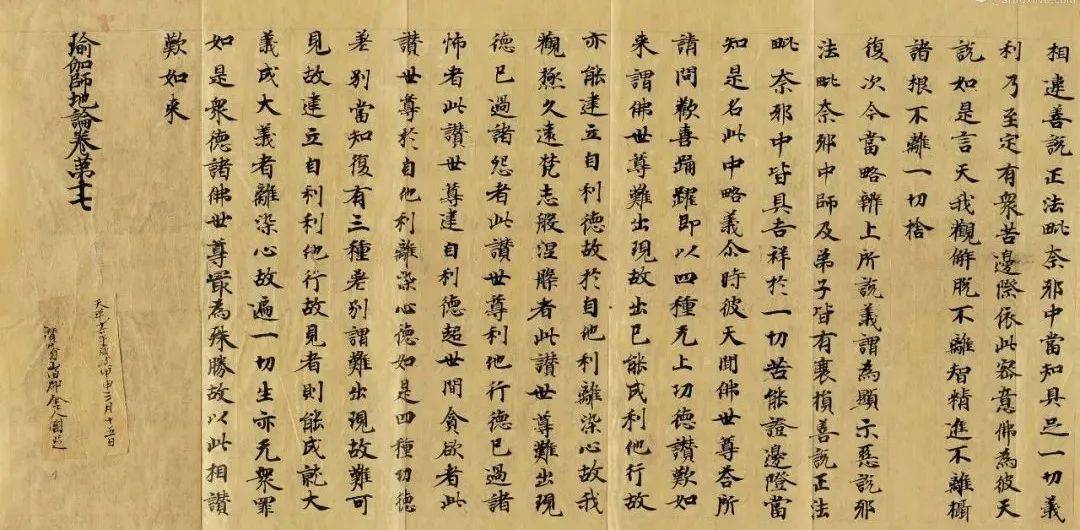 相違善說正法毗奈邪中當知具足一切義
利乃至定有衆苦邊際依此密意佛為彼天
說如是言天我觀解脫不離智精進不離攝
諸根不離一切捨
復次今當略辨上所說義謂為顯示惡說邪
法毗奈邪中師及弟子皆有衰損善說正法
毗奈邪中皆具吉祥於一切苦能證邊際當
知是名此中略義尒時彼天聞佛世尊荅所
請問歡喜踊躍即以四種无上功德讃歎如
来謂佛世尊難出現故出已能成利他行故
亦能建立自利德故於自他利離染心故我
觀極久遠梵志般涅槃者此讃世尊難出現
德已過諸怨者此讃世尊利他行德已過諸
怖者此讃世尊建自利德超世間貪欲者此
讃世尊於自他利離染心德如是四種功德
差別當知復有三種差別謂難出現故難可
見故建立自利利他行故見者則能成就大
義成大義者離染心故遍一切生亦无衆罪
如是衆德諸佛世尊最為殊勝故以此相讃
歎如来
瑜伽師地論卷第十七
天平十六年歲次甲申三月十五日